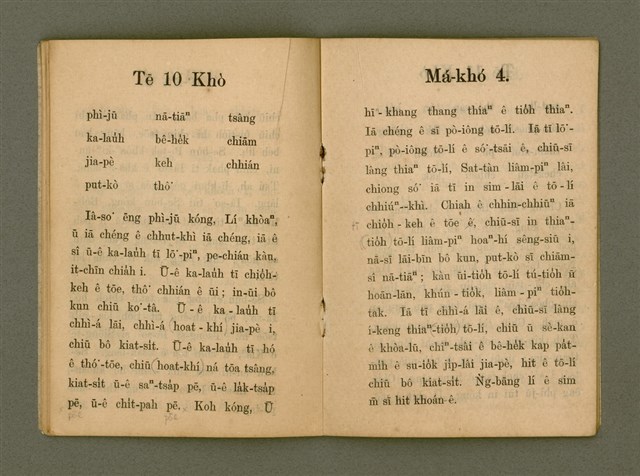 Tē 10 Khò
phì-jū nā-tiāⁿ tsàng
ka-la̍uh bê-he̍k chiām
jia-pè keh chhián
put-kò thô͘
Iâ-so͘ ēng phì-jū kóng, Lí khòaⁿ,
ū iā chéng ê chhut-khì iā chéng, iā ê
sî ū-ê ka-la̍uh tī lō͘-piⁿ, pe-chiáu kàu,
it-chīn chia̍h i. Ū-ê ka-la̍uh tī chio̍h-
keh ê tōe, thô͘ chhián ê ūi; in-ūi bô
kun chiū ko͘-tâ. Ū-ê ka-la̍uh tī
chhì-á lāi, chhì-á hoat-khí jia-pè i,
chiū bô kiat-si̍t. Ū-ê ka-la̍uh tī hó
ê thó͘-tōe, chiū hoat-khí ná tōa tsâng,
kiat-si̍t ū-ê saⁿ-tsa̍p pē, ū-ê la̍k-tsa̍p
pē, ū-ê chi̍t-pah pē. Koh kóng, Ū
Má-khó 4.
hī-khang thang thiaⁿ ê tio̍h thiaⁿ.
Iā chéng ê sī pò-iông tō-lí. Iā tī lō͘-
piⁿ, pò-iông tō-lí ê só͘-tsāi ê, chiū-sī
lâng thiaⁿ tō-lí, Sat-tàn liâm-piⁿ lâi,
chiong só͘ iā tī in sim-lāi ê tō-lí
chhiúⁿ--khì. Chiah ê chhin-chhiūⁿ iā
chio̍h-keh ê tōe ê, chiū-sī in thiaⁿ-
tio̍h tō-lí liâm-piⁿ hoaⁿ-hí sêng-siū i,
nā-sī lāi-bīn bô kun, put-kò sī chiām-
sì nā-tiāⁿ; kàu ūi-tio̍h tō-lí tú-tio̍h ū
hoān-lān, khún-tio̍k, liâm-piⁿ tio̍h-
tak. Iā tī chhì-lāi ê, chiū-sī lâng
í-keng thiaⁿ-tio̍h tō-lí, chiū ū sè-kan
ê khòa-lū, chîⁿ-tsâi ê bê-he̍k kap pa̍t-
mi̍h ê su-io̍k ji̍p-lâi jia-pè, hit ê tō-lí
chiū bô kiat-si̍t. Ǹg-bāng lí ê sim
m̄ sī hit khoán ê.